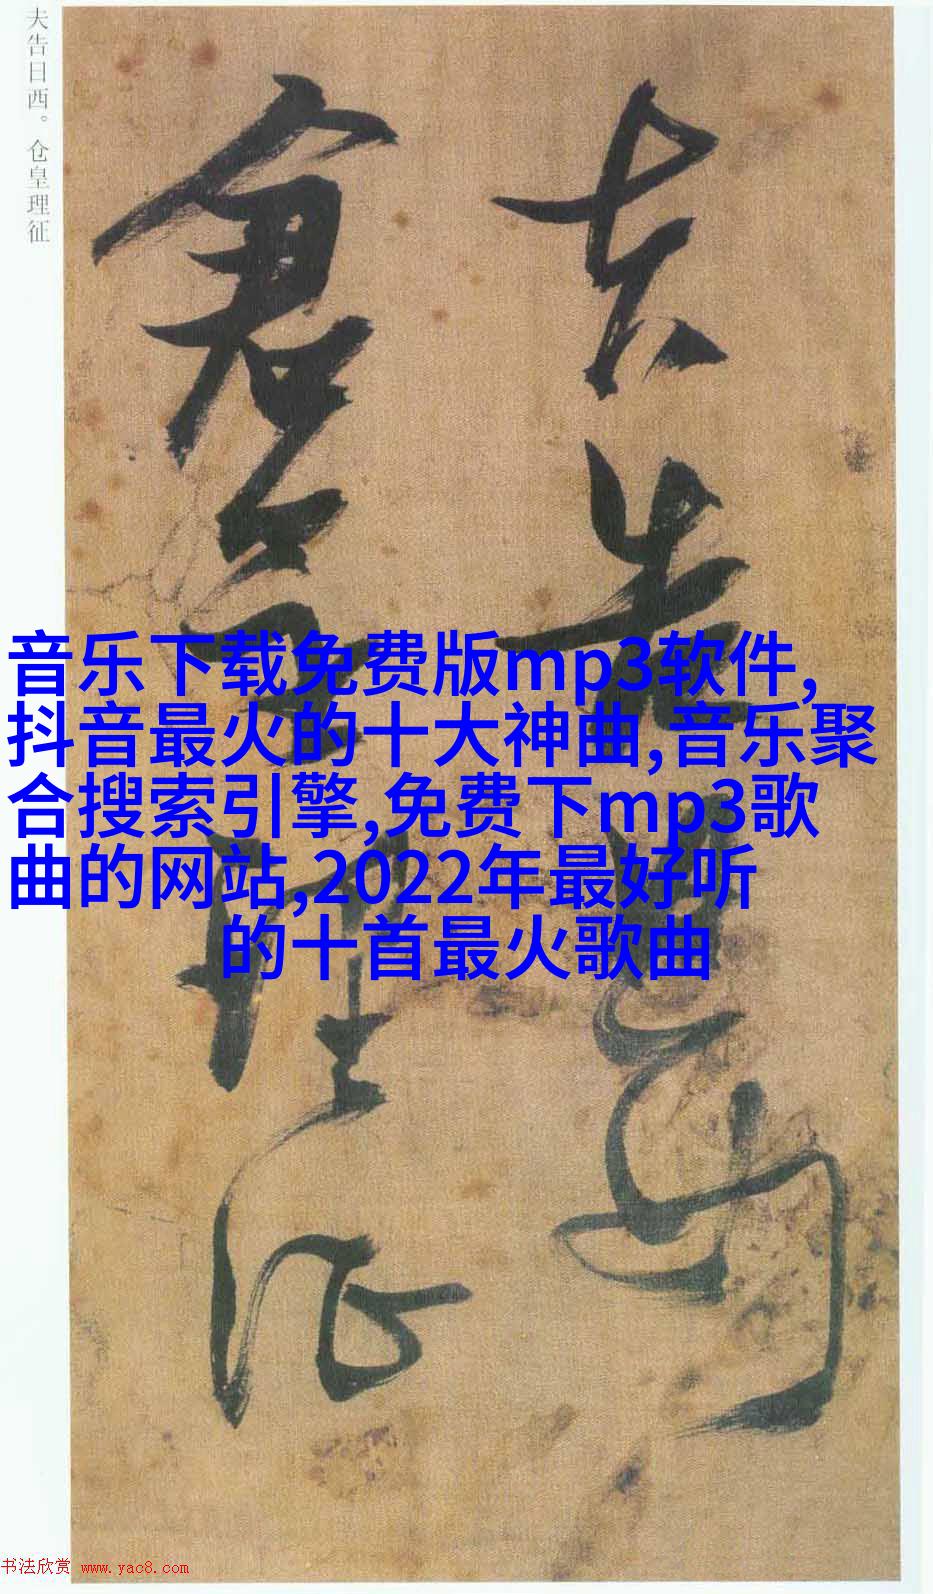 夫告日西。仓皇理征
夫告日西
仓皇理征
音乐下载免费版mp3软件,
抖音最火的十大神曲,音乐聚
合搜索引擎,免费下mp3歌
曲的网站,2022年最好听
的十首最火歌曲
书法欣赏 www.yac8.com